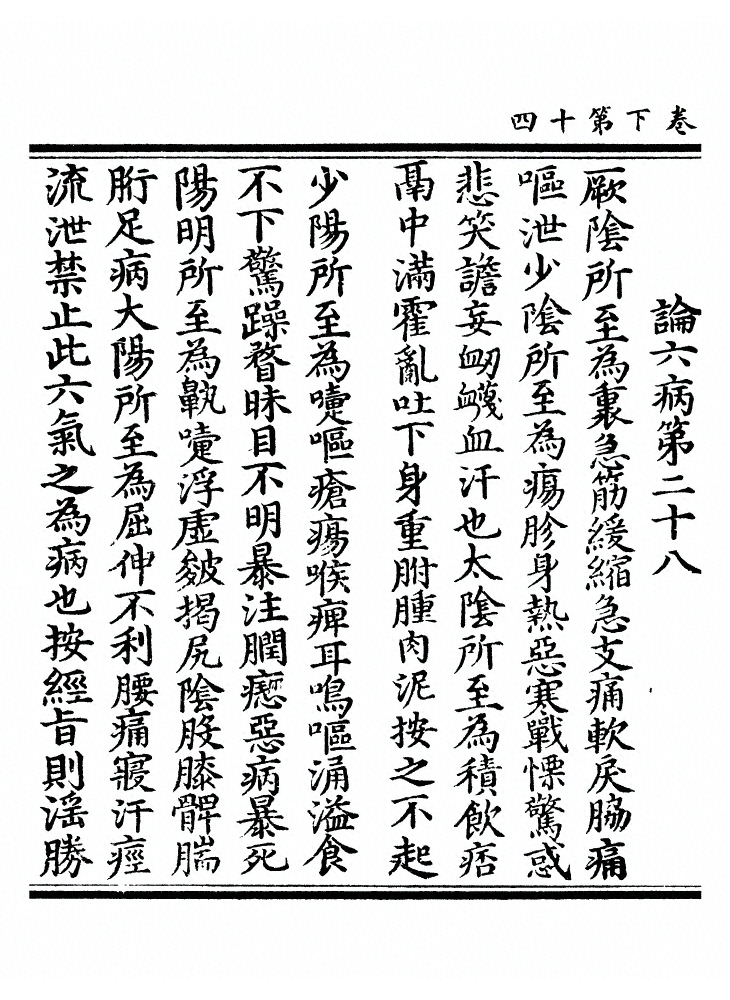 卷下第十四
論六病第二十八
厥陰所至為裏急筋緩縮急支痛軟戾脇痛
嘔泄少陰所至為瘍胗身熱惡寒戰慄驚惑
悲笑譫妄衂衊血汗也太陰所至為積飲痞
鬲中滿霍亂吐下身重胕腫肉泥按之不起
少陽所至為嚏嘔瘡瘍喉痺耳鳴嘔涌溢食
不下驚躁瞀昧目不明暴注瞤瘛惡病暴死
陽明所至為鼽嚏浮虛皴揭尻陰股膝髀腨
䯒足病大陽所至為屈伸不利腰痛寢汗痙
流泄禁止此六氣之為病也按經旨則淫勝